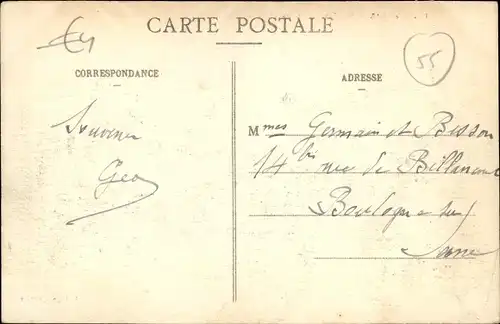 CARTE POSTALE
55
CORRESPONDANCE
ADRESSE
Souvenir
Geo
Mmes Germain et Bisson
14 bis rue de Billancourt
Boulogne sur
Seine